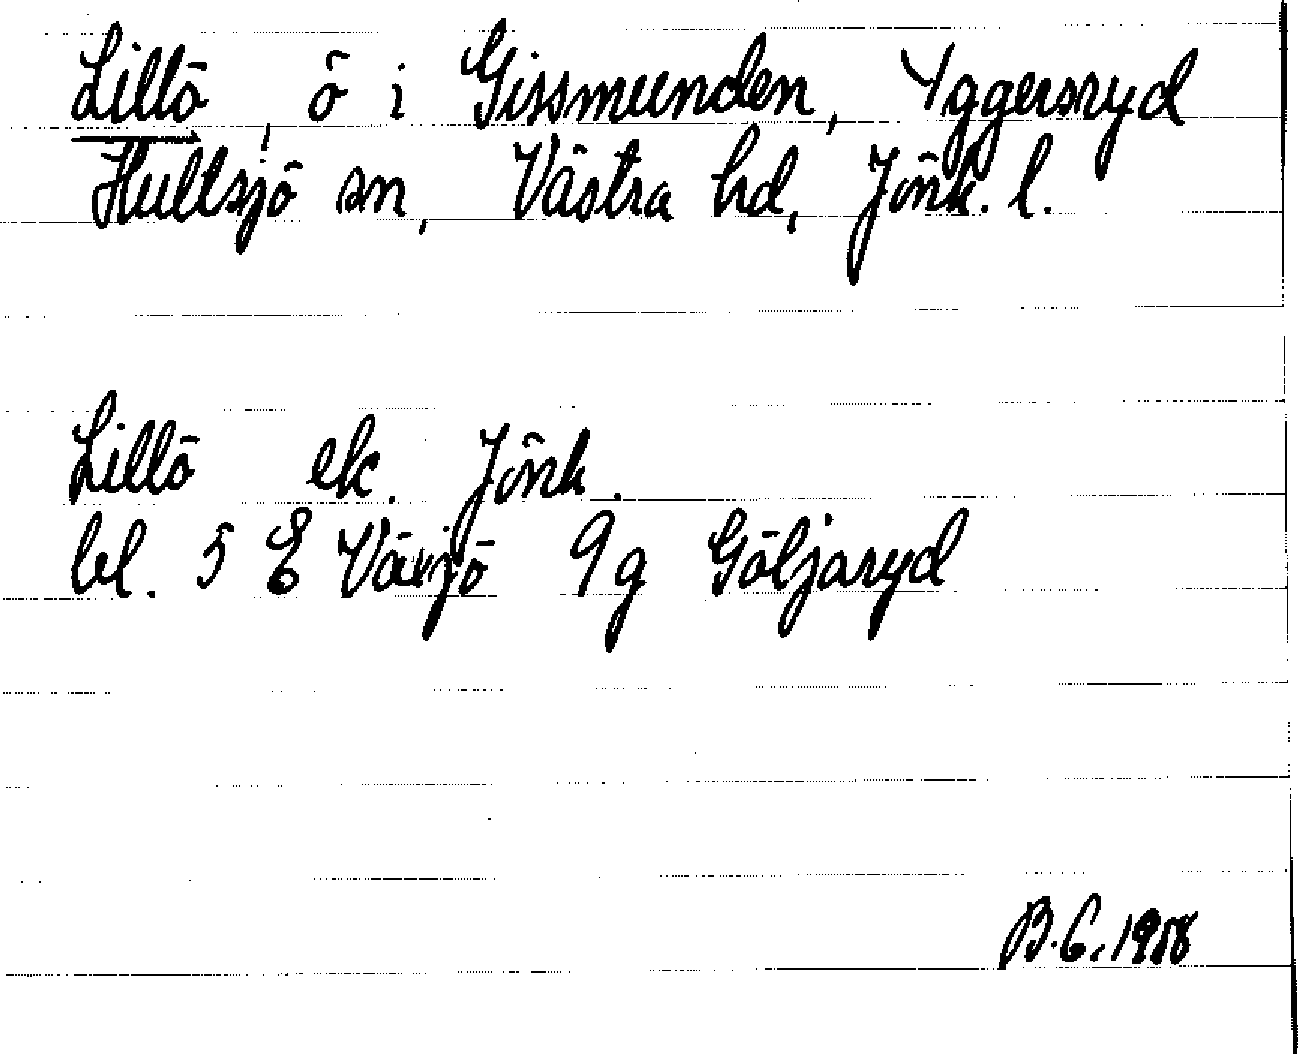 Lillö, ö i Gissmunden, Yggersryd
Hultsjö sn, Västra hd, Jönk. l.
Lillö ek. Jönk.
bl. 5 E Växjö 9g Göljaryd
B.G. 1958